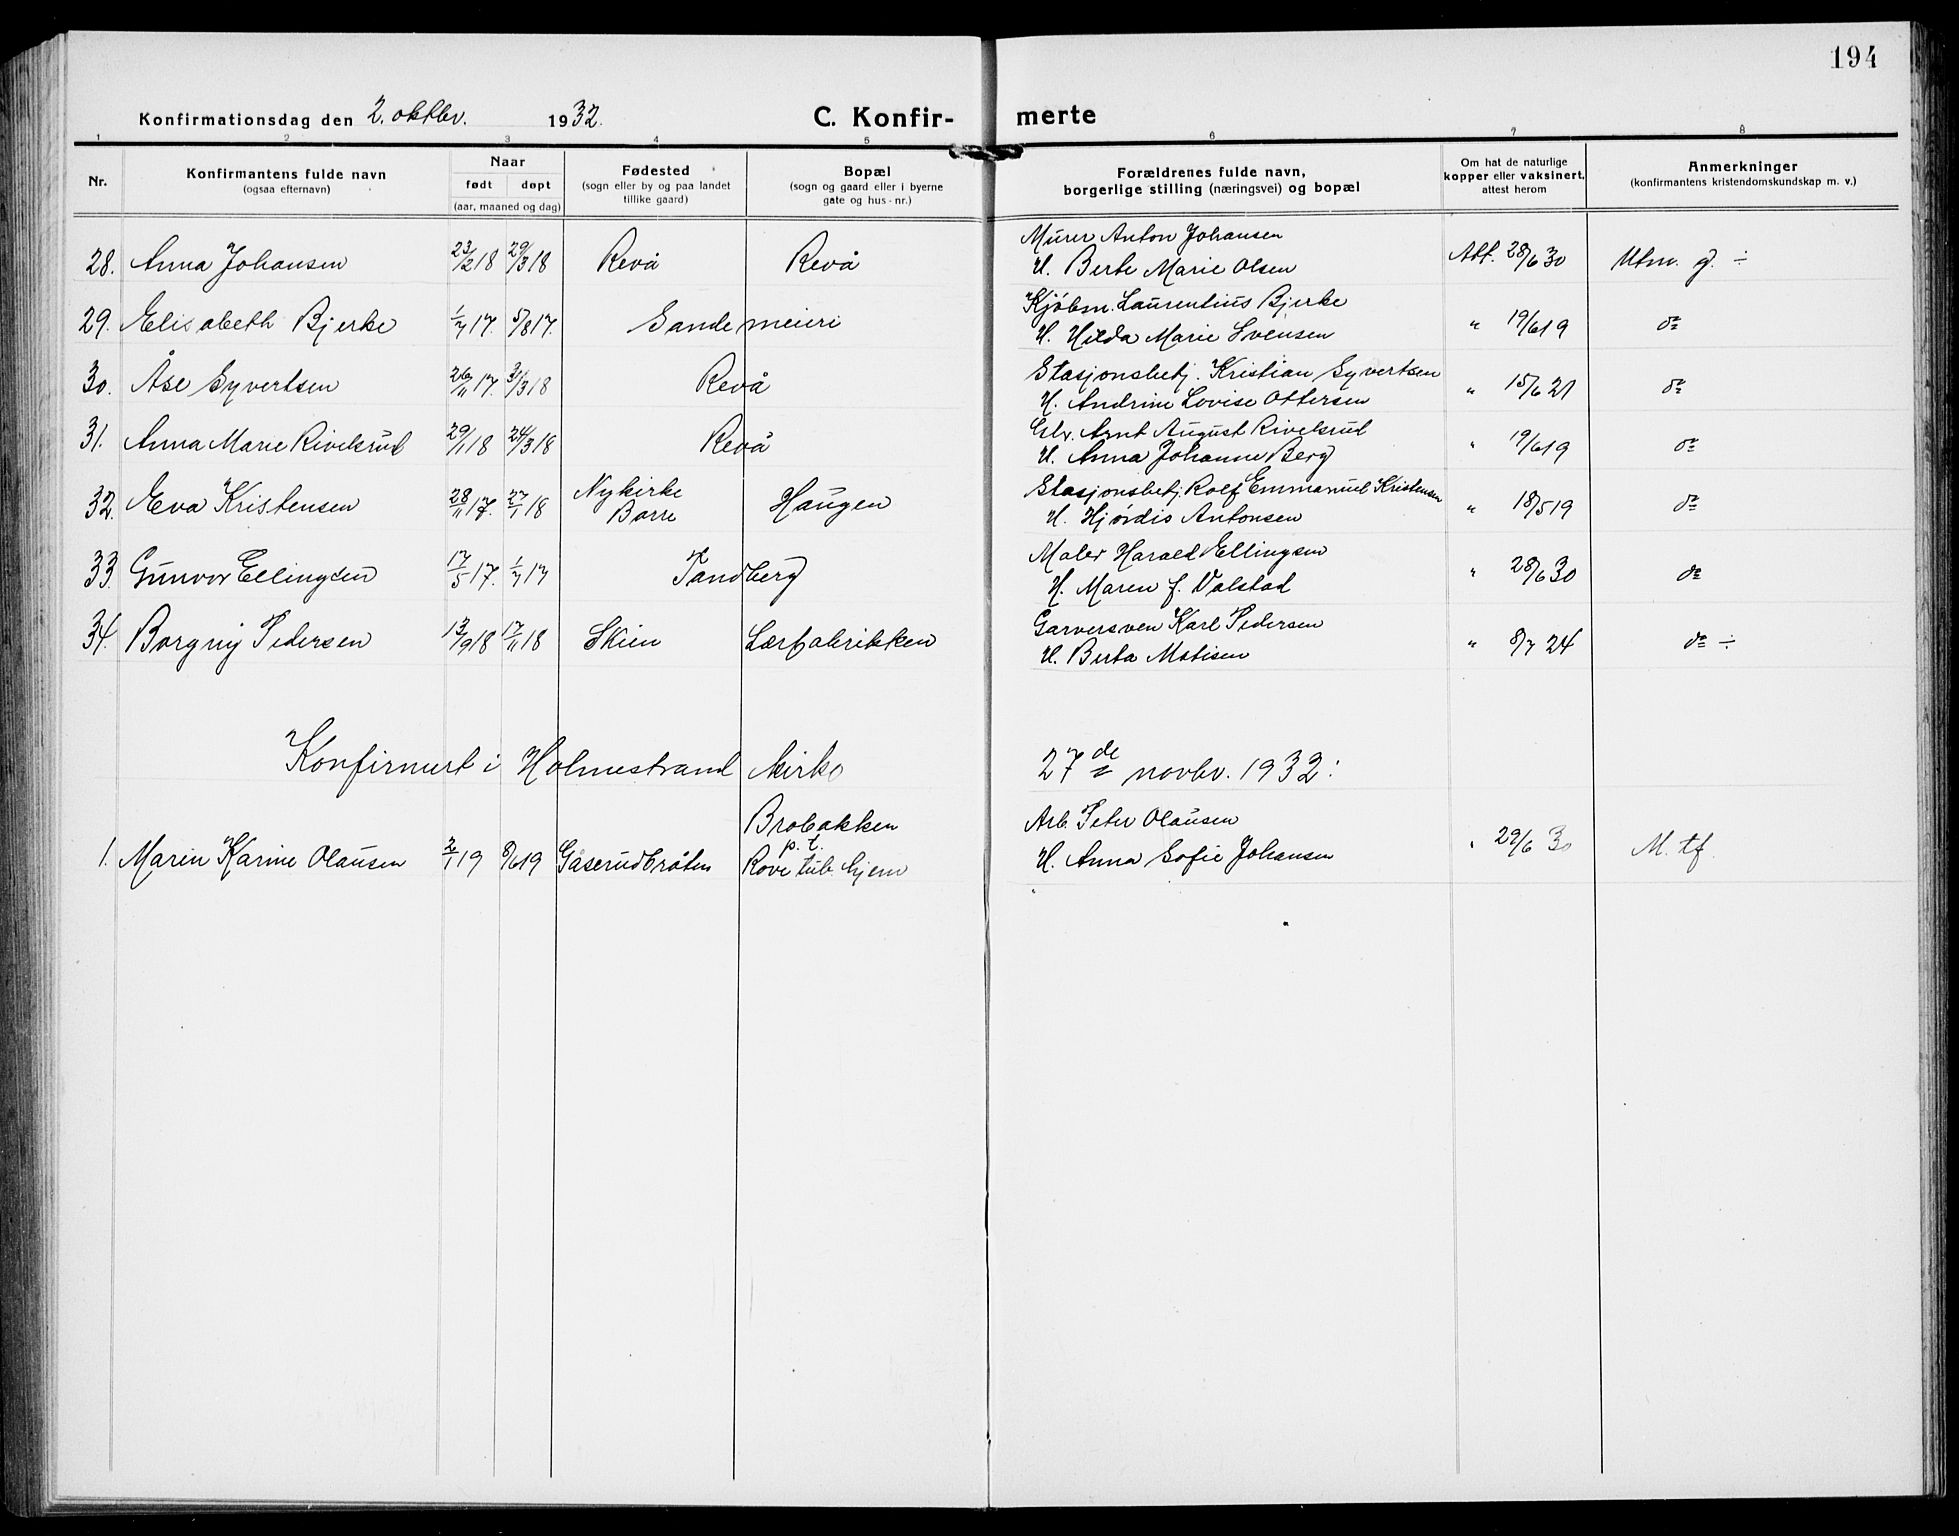 194
Konfirmationsdag den 2. oktbr. 1932.
C. Konfirmerte
1 2 3 4 5 6 7 8
Nr.
Konfirmantens fulde navn
(ogsaa efternavn)
Naar
født døpt
(aar, maaned og dag)
Fødested
(sogn eller by og paa landet
tillike gaard)
Bopæl
(sogn og gaard eller i byerne
gate og hus-nr.)
Forældrenes fulde navn,
borgerlige stilling (næringsvei) og bopæl
Om hat de naturlige
kopper eller vaksinert,
attest herom
Anmerkninger
(konfirmantens kristendomskundskap m. v.)
28. Anna Johansen 23/2 18 29/3 18 Revå Revå Murer Anton Johansen
H. Berte Marie Olsen Att. 28/6 30 Utm. g. ÷
29. Elisabeth Bjerke 1/7 17. 5/8 17. Sande meieri Kjøbm. Laurentius Bjerke
H. Hilda Marie Svensen " 19/6 19 do
30. Åse Syvertsen 26/11 17. 31/3 18 Revå Stasjonsbetj. Kristian Syvertsen
H. Andrine Lovise Ottersen " 15/6 21 do
31. Anna Marie Rivelsrud 29/1 18 24/3 18 Revå Arnt August Rivelsrud
H. Anna Johanne Berg " 19/6 19 do
32. Eva Kristensen 28/11 17. 27/1 18 Nykirke
Borre Haugen Stasjonsbetj. Rolf Emmanuel Kristensen
H. Hjørdis Antonsen " 18/5 19 do
33. Gunvor Ellingsen 17/5 17. 1/7 17 Tandberg Maler Harald Ellingsen
H. Maren f. Valstad " 28/6 30 do
34. Borgny Pedersen 13/9 18 17/11 18 Skien Lærfabrikken Garversven Karl Pedersen
H. Berta Matisen " 8/7 24 do ÷
Konfirmert i Holmestrand kirke 27de novbr. 1932:
1. Marin Karine Olausen 2/1 19 8/6 19 Gåserudbråten Brobakken
p. t.
Rove tub. hjem Arb. Peter Olausen
H. Anna Sofie Johansen " 29/6 30 M. tf.